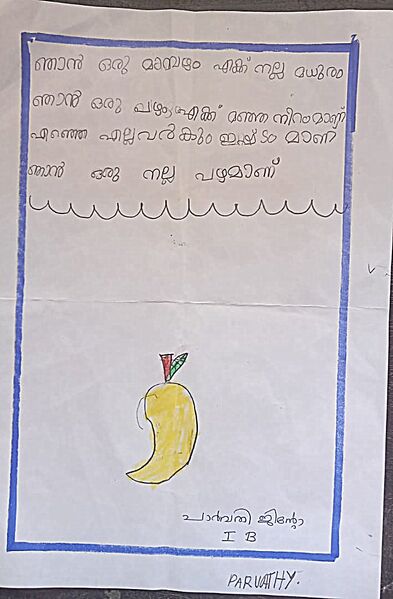 ഞാൻ ഒരു മാമ്പഴം എക്ക് നല്ല മധുരം
ഞാൻ ഒരു പഴം എക്ക് മഞ്ഞ നിറമാണ്
എന്തെ എല്ലവർകും ഇഷ്ടം മാണ്
ഞാൻ ഒരു നല്ല പഴമാണ്
പാർവതി ജിന്റോ
I B
PARVATHY.